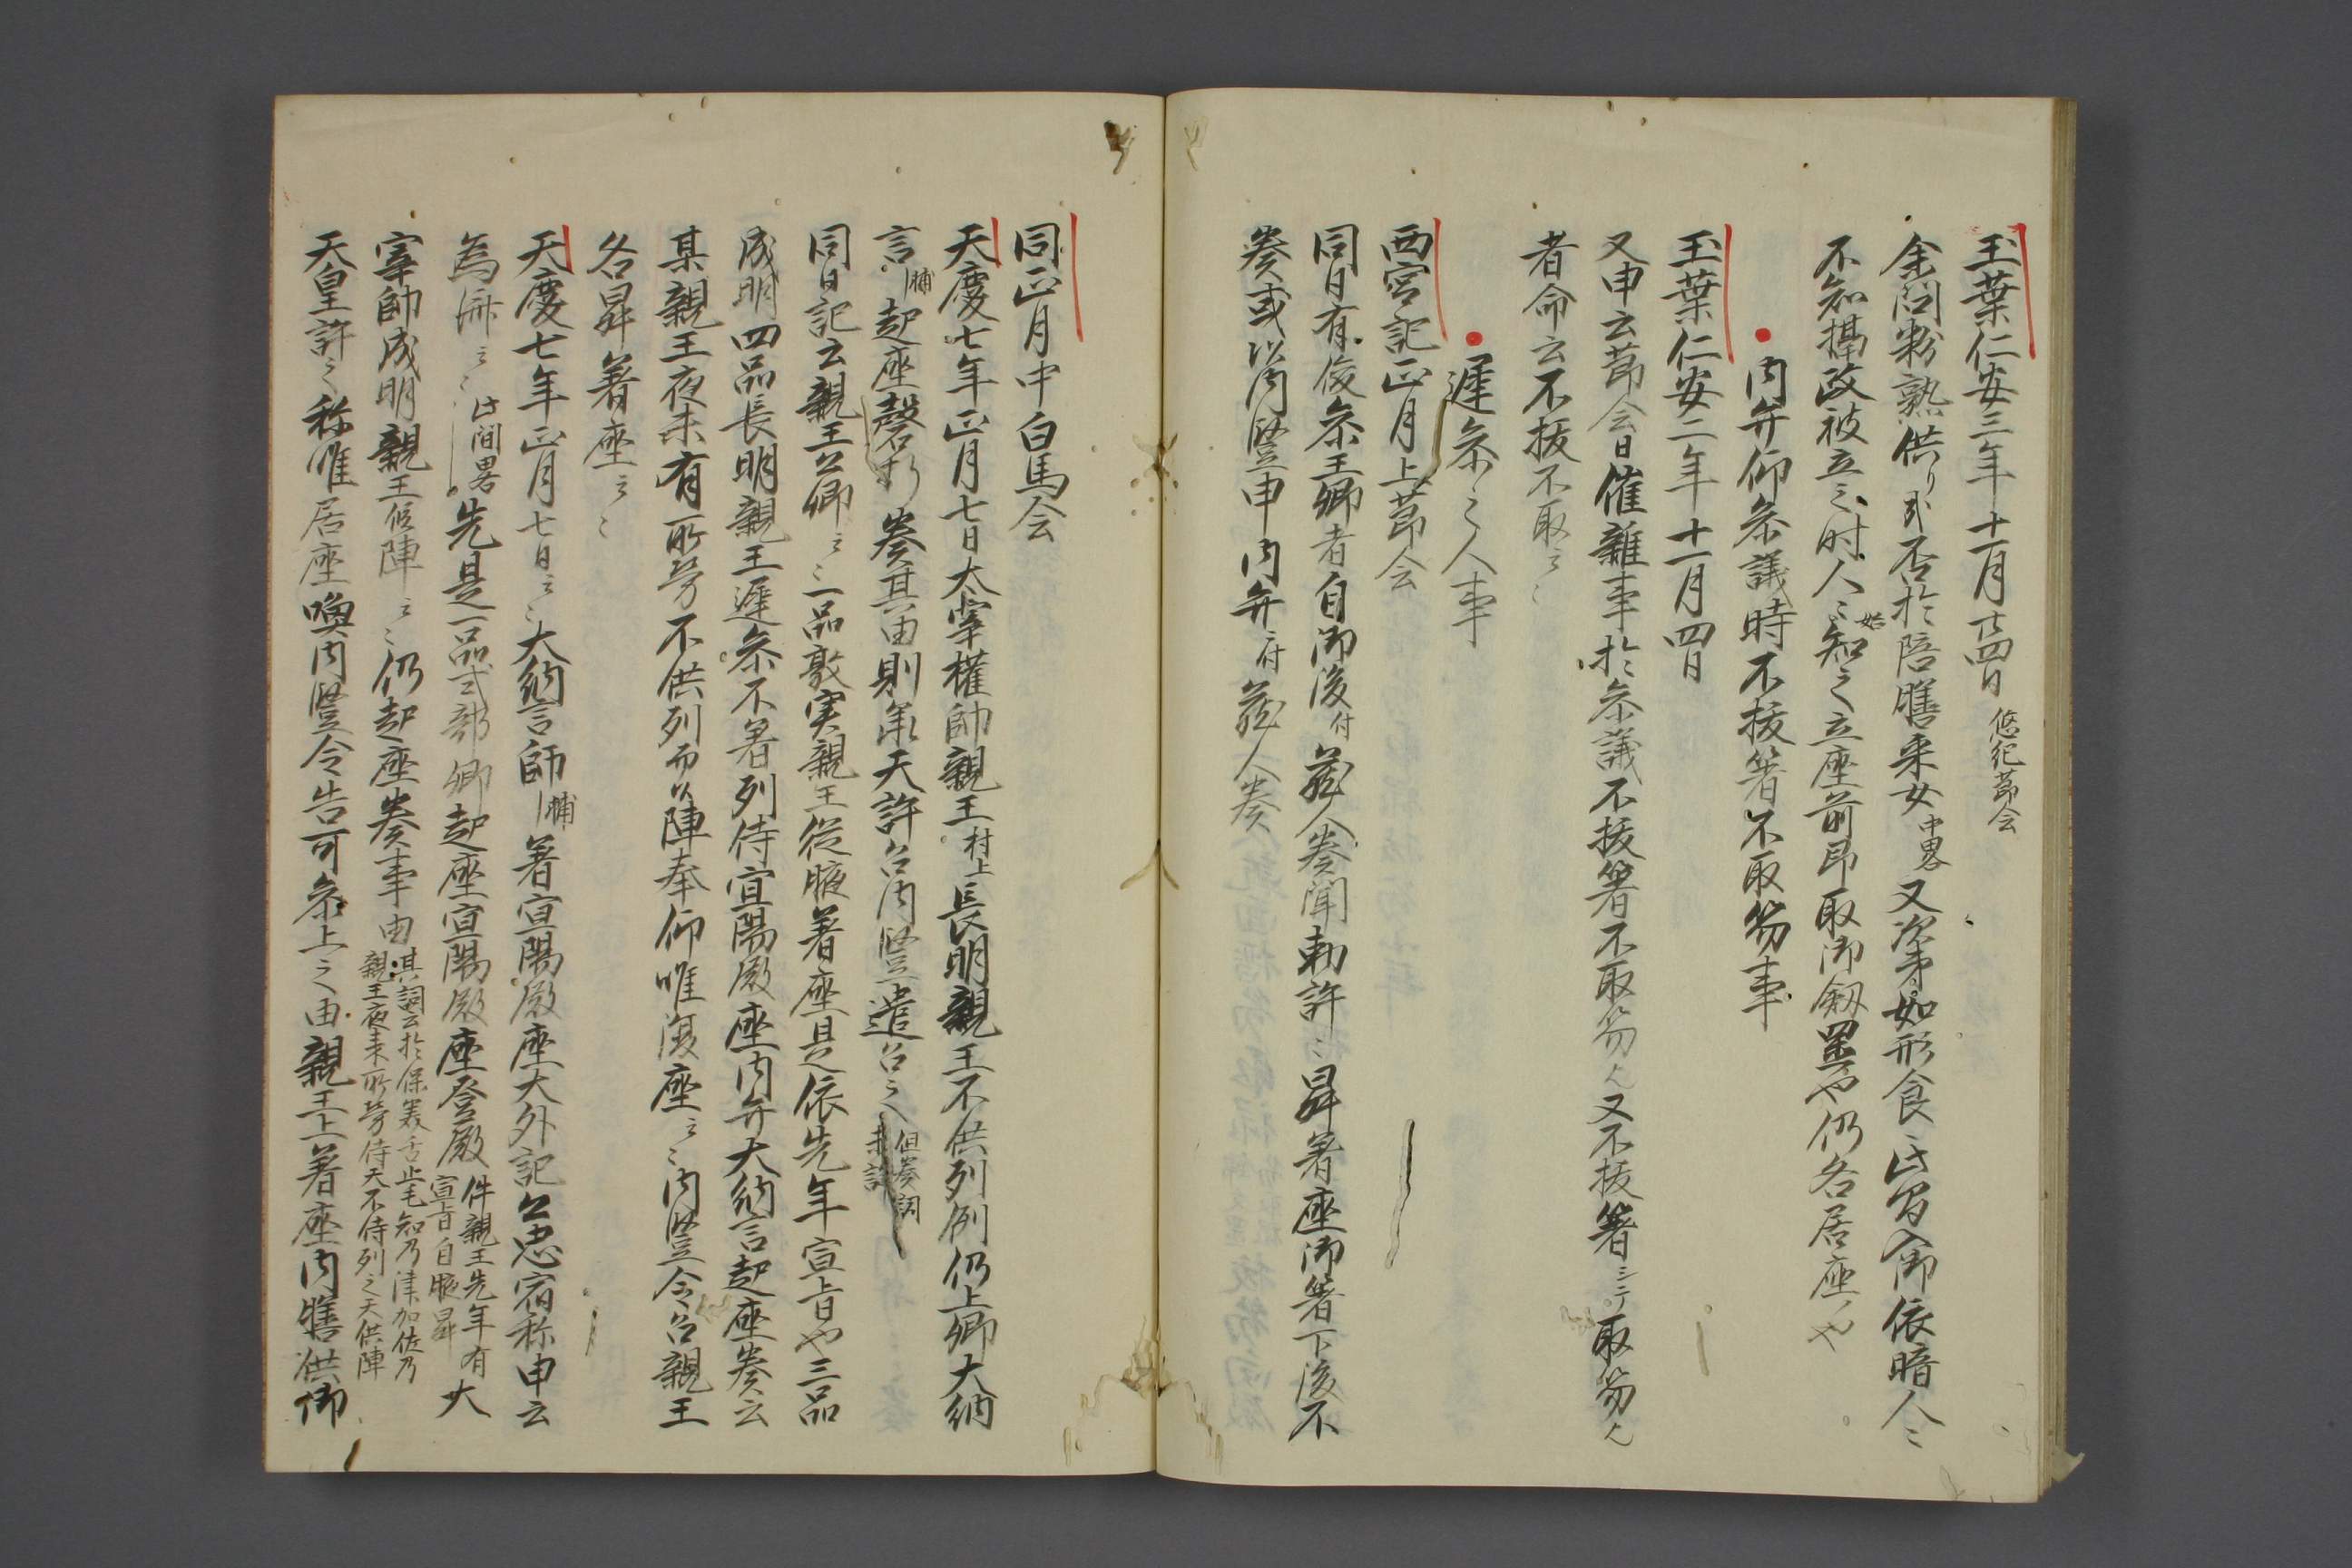 玉葉仁安三年十一月廿四日 悠紀節会
余問粉熟供リ哉否於陪膳采女 中略 又次第如形食之此間入御依暗人ミ
不知揚改被立之時人ミ始知之立座前即取御釼璽也仍各居座了也
内弁仰参議時不抜箸不取笏事
玉葉仁安二年十一月四日
又申云節会日催雑事於参議不抜箸不取笏欤又不抜箸シテ取笏欤
者命云不抜不取云々
遅参之人事
西宮記正月上節会
同日有後参王卿者自御後付蔵人奏聞勅許ミ昇着座御箸下後不
奏或以内竪申内弁付蔵人奏
同正月中白馬会
天慶七年正月七日太宰権帥親王 村上 長明親王不供列例仍上卿大納
言 師輔 起座磬折奏其由則承天許召内竪遣召之 但奏詞未詳
同日記云親王公卿云々一品敦実親王従腋着座是依先年宣旨也三品
成明四品長明親王遅参不着列侍宣陽殿座内弁大納言起座奏云
某親王夜来有所労不供列而候陣奉仰唯復座云々内竪令召親王
各昇着座云々
天慶七年正月七日云々大納言師輔着宣陽殿座大外記公忠宿称申云
為済云々 此間略 先是一品式部卿起座宣陽殿座登殿 件親王先年有宣旨自腋昇 大
宰帥成明親王候陣云々仍起座奏事由 其詞云於保美古止毛知乃津加佐乃親王夜来所労侍天不侍列之天供陣
天皇許之称唯居座喚内竪令告可参上之由親王上着座内膳供御